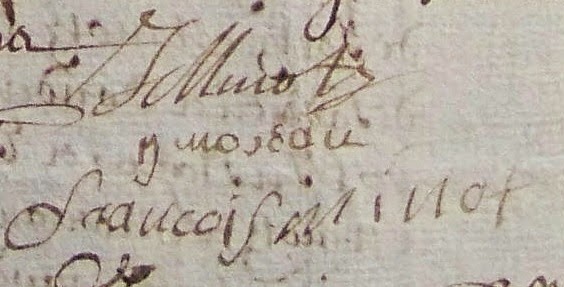 Minot
y moreau
francois minot